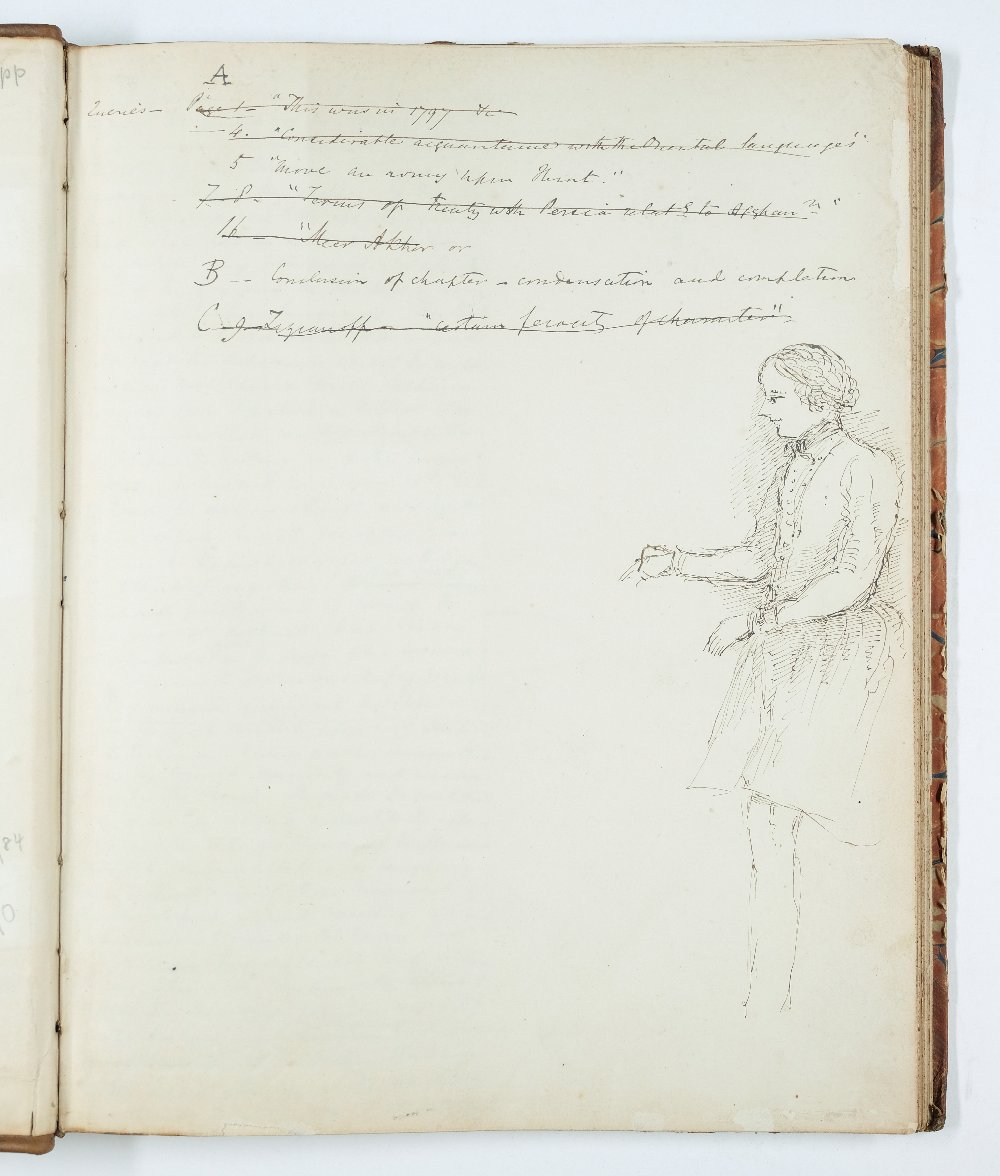 pp
A
Queries — Page 1 — "This was in 1797 &c —
— 4. "Considerable acquaintance with the Oriental languages"
5 "Move an army upon Herat."
7. 8. "Terms of treaty with Persia relat^g to Afghan^n"
16 — "Meer Akhor or
B -- Conclusion of chapter — condensation and completion
C 9 — Zizianoff — "certain ferocity of character"
84
0